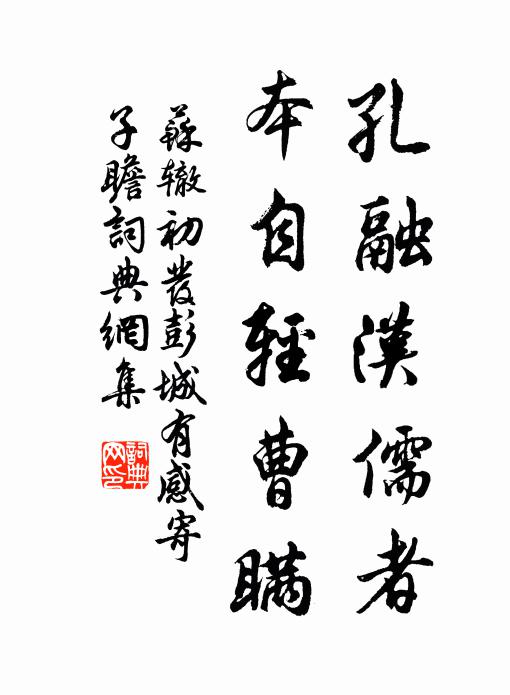 孔融漢儒者
本自輕曹瞞
蘇轍初發彭城有感寄
子瞻詞典網集
詞典網印